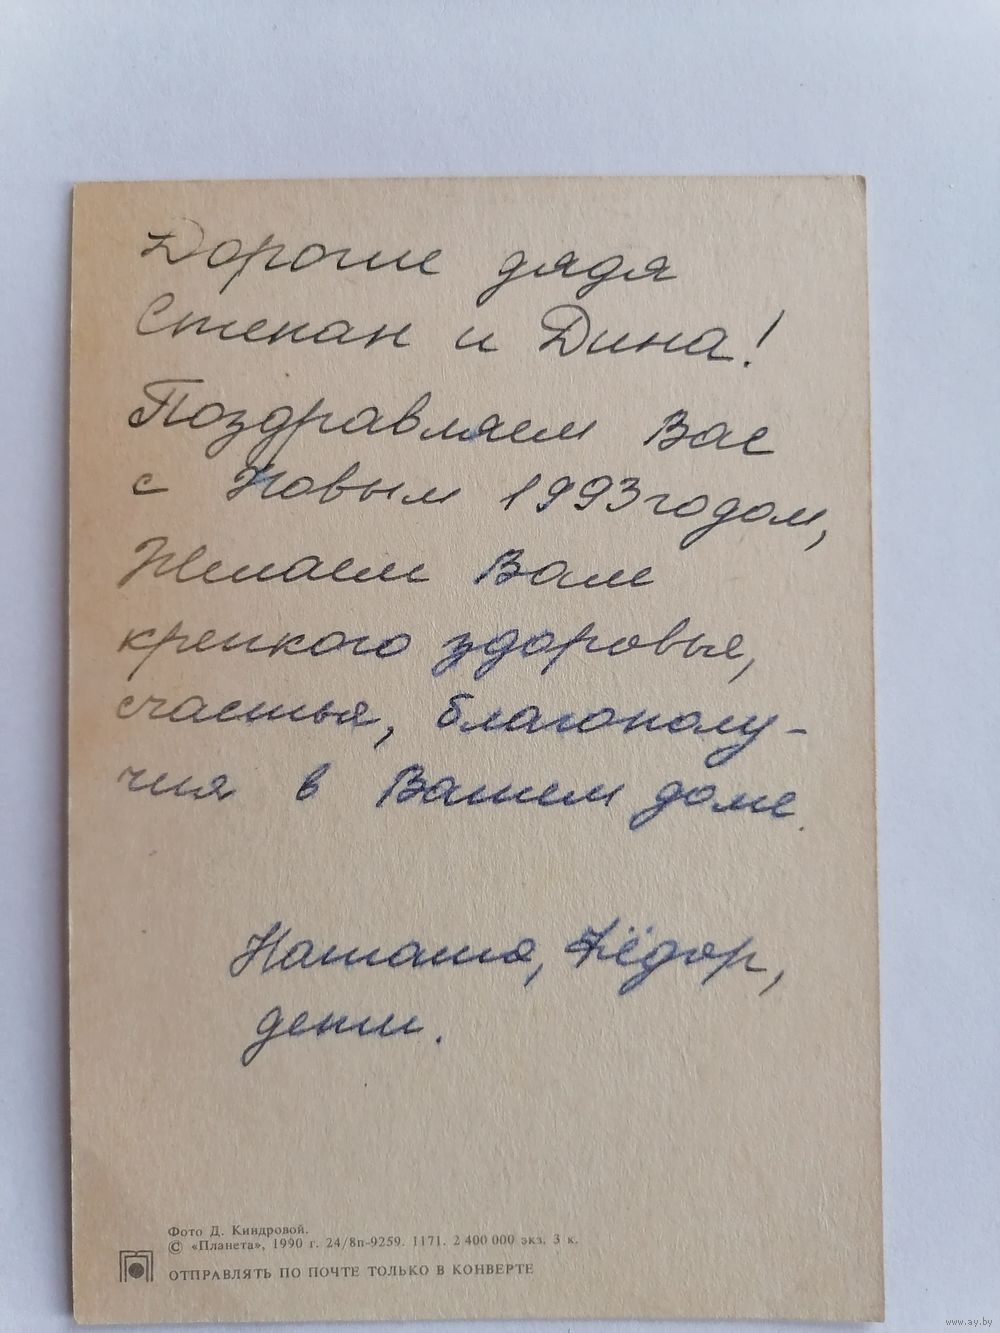 Дорогие дядя
Степан и Дина!
Поздравляем Вас
с Новым 1993 годом,
Желаем Вам
крепкого здоровья,
счастья, благополу-
чия в Вашем доме.
Наташа, Фёдор,
дети.
Фото Д. Киндровой.
© «Планета», 1990 г. 24/8п-9259. 1171. 2 400 000 экз. 3 к.
ОТПРАВЛЯТЬ ПО ПОЧТЕ ТОЛЬКО В КОНВЕРТЕ
www.ay.by